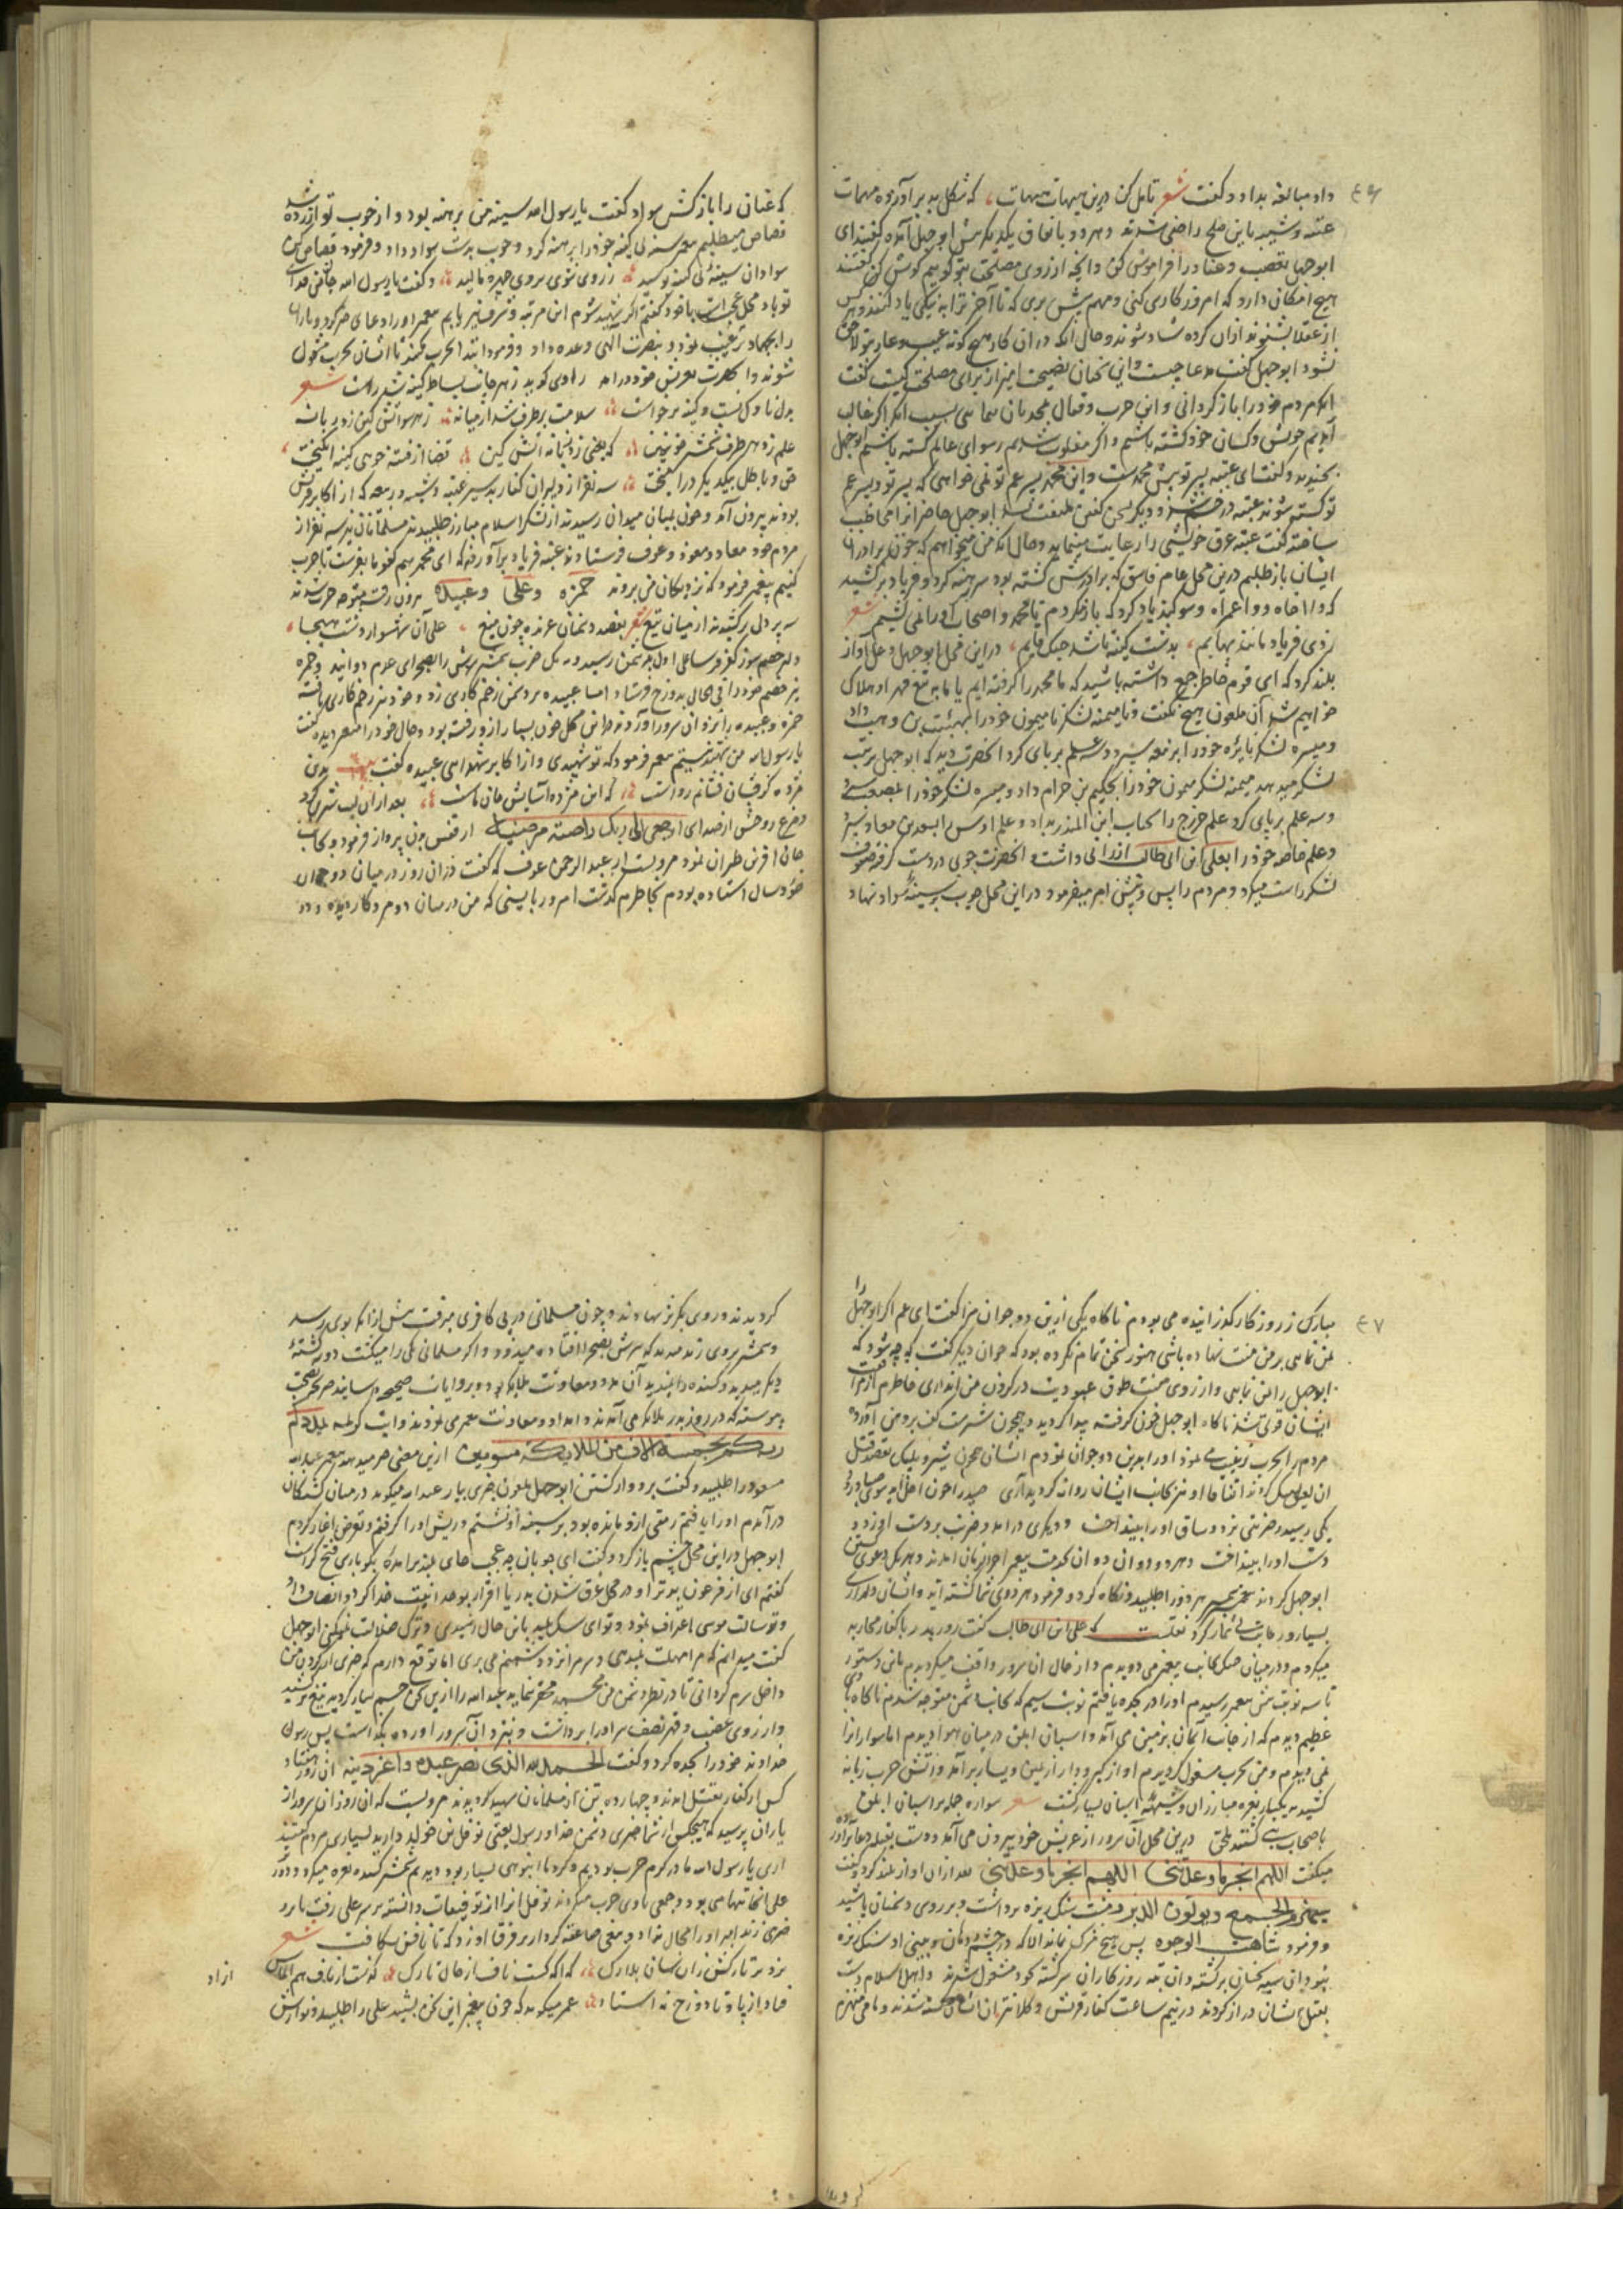 ٤٦
داد مبالغه بداد و گفت شعر تامل کن درین هیهات هیهات که شکل بد برآورده مهمات
عتبه و شیبه باین صلح راضی شدند و هر دو باتفاق یکدیگر پیش ابوجهل آمده گفتند ای
ابوجهل تعصب و عناد را فراموش کن و آنچه از روی مصلحت بتو گوییم گوش کن گفتند
هیچ امکان دارد که امروز کاری کنی و مهم پیش بری که تا آخر ترا به نیکی یاد کنند و هر کس
از عقلا بشنوند ازان کرده شاد شوند و حال آنکه در ان کار هیچ گونه عیب و عار بتو لاحق
نشود ابوجهل گفت مدعا چیست و این سخنان نصیحت آمیز از برای مصلحت کیست گفت
آنکه مردم خود را باز گردانی و این حرب و قتال
آییم خویش و کسان خود کشته باشیم و اگر مغلوب شدیم رسوای عالم گشته باشیم ابوجهل
بخندید و گفت ای عتبه پسر تو پیش محمد است و این محمد پسر عم تو نمی خواهی که پسر تو و پسر عم
تو کشته شوند عتبه در خشم شد و دیگر بسخن گفتن ملتفت نشد ابوجهل حاضر انرا مخاطب
ساخته گفت عتبه عرق خویشی را رعایت مینماید و حال آنکه من میخواهم که خون برادران
ایشان باز طلبم درین محل عامر فاسق که برادرش کشته بود سر برهنه کرد و فریاد برکشید
که وا اخاه و وا عمراه و سوگند یاد کرد که باز نگردم تا محمد و اصحاب او را نمی کشیم شعر
زدی فریاد مانند بهایم بدشت کینه باشد جنگ قایم درین محل ابوجهل و عل آواز
بلند کرد که ای قوم خاطر جمع داشته باشید که ما محمد را گرفته ایم یا ما به تیغ قهر او هلاک
خواهیم شد آن ملعون هیچ نگفت و با میمنه لشکر نامیمون خود را بهبئت بن وهب داد
و میسره لشکر بایزه خود را ابو نعمه سپرد و سه علم بر پای کرد آنحضرت دید که ابوجهل ترتیب
لشکر میدهد میمنه لشکر میمون خود را بحکیم بن حرام داد و میسره لشکر خود را بمصعب سپرد
و سه علم بر پای کرد علم خزرج را بحباب ابن المنذر بداد و علم اوس را بسعد بن معاذ سپرد
و علم خاصه خود را بعلی ابن ابی طالب ارزانی داشت و آنحضرت چوبی در دست گرفته صفوف
لشکر راست میکرد و مردم را پس و پیش امر میفرمود در این محل چوب بر سینه سواد نهاد
که عنان را بازکش سواد گفت یا رسول الله سینه من برهنه بود و از خوب تو آزرده شد
قصاص میطلبم پیغمبر سینه بی کینه خود را برهنه کرد و چوب بدست سواد داد و فرمود قصاص کن
سواد ان سینه بی کینه بوسید ز روی شوی بروی چهره مالید و گفت یا رسول الله جانم فدای
تو باد محل عجب است با خود گفتم اگر شهید شوم این مرتبه و شرف نیز یابم پیغمبر او را دعای خیر کرد و یاران
را بجهاد ترغیب نمود و بنصرت الهی وعده داد و فرمود ابتدا الحرب مکنید تا ایشان بحرب مشغول
شوند و آنحضرت بعریش خود درآمد راوی گوید ز هر جانب بساط کینه شد راست شعر
بدل ناوک نشست و کینه برخواست سلامت برطرف شد از میانه ز هر سو آتش کین زد زبانه
علم زد هر طرف شمشیر خونین که یعنی زد زبانه آتش کین قضا از فتنه خوی کینه انگیخت
حق و باطل بیکدیگر در آمیخت سه نفر از دلیران کفار بد سیر عتبه و شیبه و ربیعه که از اکابر قریش
بودند بیرون آمد و چون بمیان میدان رسیدند از لشکر اسلام مبارز طلبیدند مسلمانان نیز سه نفر از
مردم خود معاذ و معوذ و عوف فرستادند عتبه فریاد برآورد که ای محمد هم کفو ما بفرست تا حرب
کنیم پیغمبر فرمود که نزدیکان من بروند حمزه و علی و عبیده بیرون رفت متوجه حرب شدند
سه پر دل برکشیدند از میان تیغ شعر بقصد دشمنان غرنده چون میغ علی آن شهسوار دشت هیجا
ولید خصم سوز کفر فرسا علی اول بدشمن رسید و به یک ضرب شمشیر سرش را بصحرای عدم دوانید و حمزه
نیز خصم خود را فی الحال بدوزخ فرستاد اما عبیده بر دشمن زخم کاری زد و خود نیز زخم کاری یافته
حمزه و عبیده را نزد ان سرور آورد و در این محل خون بسیار از و رفته بود و حال خود را متغیر دیده گفت
یا رسول الله من شهید نیستم پیغمبر فرمود که تو شهیدی و از اکابر شهدایی عبیده گفت بیت بدین
مژده گر جان فشانم رواست که این مژده آسایش جان ماست بعد از ان لب تبسم کرد
و مرغ روحش از صدای ارجعی الی ربک راضیة مرضیة از قفس بدن پرواز فرمود و بجانب
جان آفرین طیران نمود مرویست از عبدالرحمن عوف که گفت در ان روز در میان دو جوان
خورد سال استاده بودم بخاطرم گذشت امروز بایستی که من در میان دو مرد کار دیده و در
٤٧
مبارک ز روزگار گذرانیده می بودم ناگاه یکی ازین دو جوان مرا گفت ای عم اگر ابوجهل را
بمن نمایی بر من منت نهاده باشی هنوز سخن تمام نکرده بود که جوان دیگر گفت که چه شود که
ابوجهل را بمن نمایی و از روی منت طوق عبودیت در گردن من اندازی خاطرم از گفت
ایشان قوی شد ناگاه ابوجهل خون گرفته پیدا گردید و همچون شتر مست کف بر دهن آورده
مردم را بحرب ترغیب می نمود او را بدین دو جوان نمودم ایشان همچون شیر و پلنگ بقصد قتل
ان لعین میل کردند اتفاقا او نیز بجانب ایشان روانه گردید آری صید را چون اجل آید سوی صیاد رود
یکی رسید و ضربتی زد و ساق او را بینداخت و دیگری در آمد و ضرب بر دست او زد و
دست او را بینداخت و هر دو دوان دوان بخدمت پیغمبر آخر الزمان آمدند و هر یک دعوی کشتن
ابوجهل کردند پیغمبر هر دو را طلبید و نگاه کرد و فرمود هر دو وی شما کشته اید و ایشان دلداری
بسیار و رعایت بی شمار کرد نقلست که علی ابن ابی طالب گفت روز بدر با کفار محاربه
میکردم و در میان جنگ بجانب پیغمبر می دویدم و از حال ان سرور واقف میگردیدم بانی دستور
تا سه نوبت پیش پیغمبر رسیدم او را در سجده یافتم نوبت سیم که بجانب دشمن متوجه شدم ناگاه بادی
عظیم دیدم که از جانب آسمان بزمین می آمد و اسبان ابلق در میان هوا دیدم اما سوار انرا
نمی دیدم و من بحرب مشغول گردیدم آواز گیر و دار از یمین و یسار برآمد و آتش حرب زبانه
کشید بیکبار نعره مبارزان و شیهه اسبان بسیار گشت شعر سواره حمله بر اسبان ابلق
باصحاب نبی گشتند ملحق درین محل آن سرور از عریش خود بیرون می آمد و دست بقبله دعا برآورده
میگفت اللهم انجز ما وعدتنی اللهم انجز ما وعدتنی بعد از ان آواز بلند کرد و گفت
سیهزم الجمع ویولون الدبر و مشت سنگ ریزه برداشت و بر روی دشمنان پاشید
و فرمود شاهت الوجوه پس هیچ مشرک نماند الا که در چشم و دهان و بینی او سنگ ریزه
بعقل ایشان دراز کردند در نیم ساعت کفار قریش و کلانتران ایشان شکسته شدند و ما فی منهزم
گردیدند و روی بگریز نهادند و چون مسلمانی در پی کافری میرفت پیش از آنکه بوی رسد
و شمشیر بروی زند میدید که سرش بصحرا افتاده میدود و اگر مسلمانی یکی را میکشت دو سه کشته
دیگر میدید و کشنده را نمی دید آن مدد و معاونت ملایکه بود و بروایات صحیحه و اسانید صریحه بصحت
پیوسته که در روز بدر ملایکه می آمدند و امداد و معاونت پیغمبر می نمودند و ایت کریمه یمددکم
ربکم بخمسة الاف من الملایکة مسومین ازین معنی خبر میدهد پیغمبر عبدالله
مسعود را طلبید و گفت برو و از کشتن ابوجهل ملعون خبری بیار عبدالله میگوید در میان کشتگان
در آمدم او را یافتم رمقی ازو مانده بود بر سینه او نشستم و ریش او را گرفتم و تعرض آغاز کردم
ابوجهل در این محل چشم باز کرد و گفت ای چوپان چه عجب جای بلند برآمده بگو باری فتح کراست
گفتم ای از فرعون بدتر او در محل غرق شدن بدریا اقرار بوحدانیت خدا کرد و انصاف داد
و برسالت موسی اعتراف نمود و تو ای سگ پلید باین حال رسیدی و ترک ضلالت نمیکنی ابوجهل
گفت میدانم که مرا مهلت ندهی و سر مرا نزد دشمنم می بری اما توقع دارم که چیزی از گردن من
داخل سرم گردانی تا در نظر دشمن من محمد محقر ننماید عبدالله را ازین سخن خشم بسیار گردید تیغ برکشید
و از روی غضب و قهر نصف سر او را برداشت و بنزد آن سرور آورده بگذاشت پس رسول
خداوند خود را سجده کرد و گفت الحمد لله الذی نصر عبده و اعز دینه ان روز هفتاد
کس از کفار بقتل آمدند و چهارده تن از مسلمانان شهید گردیدند مرویست که ان روز ان سرور از
یاران پرسید که هیچکس از شما خبری دشمن خدا و رسول یعنی نوفل بن خولد دارید بسیاری مردم گفتند
آری یا رسول الله ما در گرم حرب بودیم و گرد ما انبوهی بسیار بود دیدیم شمشیر کشنده نعره میکرد و در
علی انجا تنها می بود و جمعی با وی حرب میکردند نوفل انرا از توقیعات دانسته بر سر علی رفت تا برو
ضربی زند امیر او را مجال نداد و تیغی صاعقه کردار بر فرق او زد که تا نافش بشکافت شعر
بزد بر تارکش زان سان بلارک که آگه گشت ناف از حال تارک
فتاد از پا و تا دوزخ نه استاد عمر میگوید که چون پیغمبر این سخن بشنید علی را طلبید و نوازش
ازاد